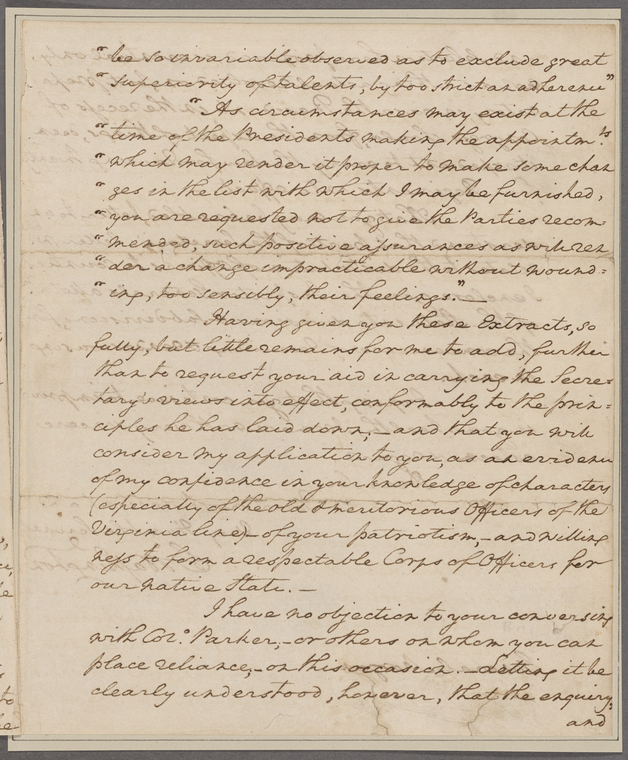 " be so invariable observed as to exclude great
" superiority of talents, by too strict an adherence"
" As circumstances may exist at the
" time of the Presidents making the appointm.ts
" which may render it proper to make some chan
" ges in the list with which I may be furnished,
" you are requested not to give the Parties recom
" mended, such positive assurances as will ren
" der a change impracticable without wound=
" ing, too sensibly, their feelings." —
Having given you these Extracts, so
fully, but little remains for me to add, further
than to request your aid in carrying the Secre=
tary's views into effect, conformably to the prin=
ciples he has laid down, – and that you will
consider my application to you, as an evidence
of my confidence in your knowledge of characters
(especially of the old & meritorious Officers of the
Virginia line) – of your patriotism, – and willing
ness to form a respectable Corps of Officers for
our native State. –
I have no objection to your conversing
with Col.o Parker, – or others on whom you can
place reliance, – on this occasion. – Letting it be
clearly understood, however, that the enquiry,
and